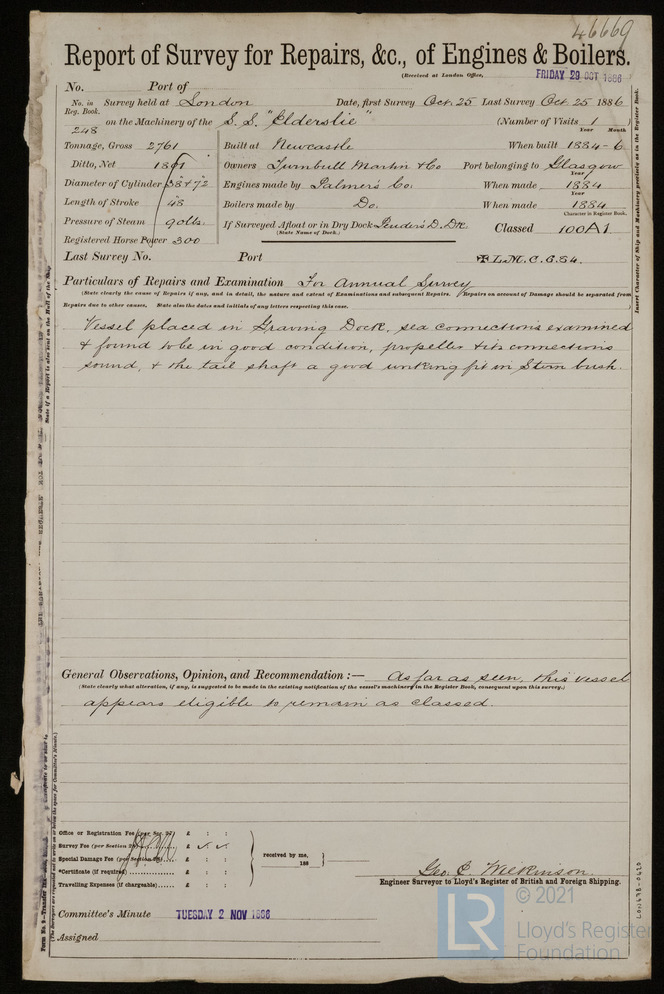 46669
Report of Survey for Repairs, &c., of Engines & Boilers.
(Received at London Office, FRIDAY 29 OCT 1886
No. Port of
No. in Reg. Book. Survey held at London Date, first Survey Oct. 25 Last Survey Oct. 25 1886
248 on the Machinery of the S.S. "Elderslie" (Number of Visits 1)
Year Month
Tonnage, Gross 2761 Built at Newcastle When built 1884-6
Ditto, Net 1801 Owners Turnbull Martin & Co Port belonging to Glasgow
Year
Diameter of Cylinder 38 & 72 Engines made by Palmers Co. When made 1884
Year
Length of Stroke 48 Boilers made by Do. When made 1884
Character in Register Book,
Pressure of Steam 90 lbs. If Surveyed Afloat or in Dry Dock D. Dk. Classed 100A1
(State Name of Dock.)
Registered Horse Power 300
Last Survey No. Port L.M.C. 6.84.
Particulars of Repairs and Examination For Annual Survey
(State clearly the cause of Repairs if any, and in detail, the nature and extent of Examinations and subsequent Repairs. Repairs on account of Damage should be separated from
Repairs due to other causes. State also the dates and initials of any letters respecting this case.
Vessel placed in Graving Dock, sea connections examined
& found to be in good condition, propeller & its connections
sound, & the tail shaft a good working fit in Stern bush.
General Observations, Opinion, and Recommendation :— As far as seen, this vessel
(State clearly what alteration, if any, is suggested to be made in the existing notification of the vessel's machinery in the Register Book, consequent upon this survey.)
appears eligible to remain as classed.
Office or Registration Fee (per Sec. 27) £ : :
Survey Fee (per Section 28) £ : :
Special Damage Fee (per Section 28) £ : :
*Certificate (if required) £ : :
Travelling Expenses (if chargeable) £ : :
received by me,
188
Geo. C. Wilkinson.
Engineer Surveyor to Lloyd's Register of British and Foreign Shipping.
Committee's Minute TUESDAY 2 NOV 1886
Assigned
Insert Character of Ship and Machinery precisely as in the Register Book.
State if a Report is also sent on the Hull of the Ship
LON698-0420
© 2021
LR
Lloyd's Register
Foundation